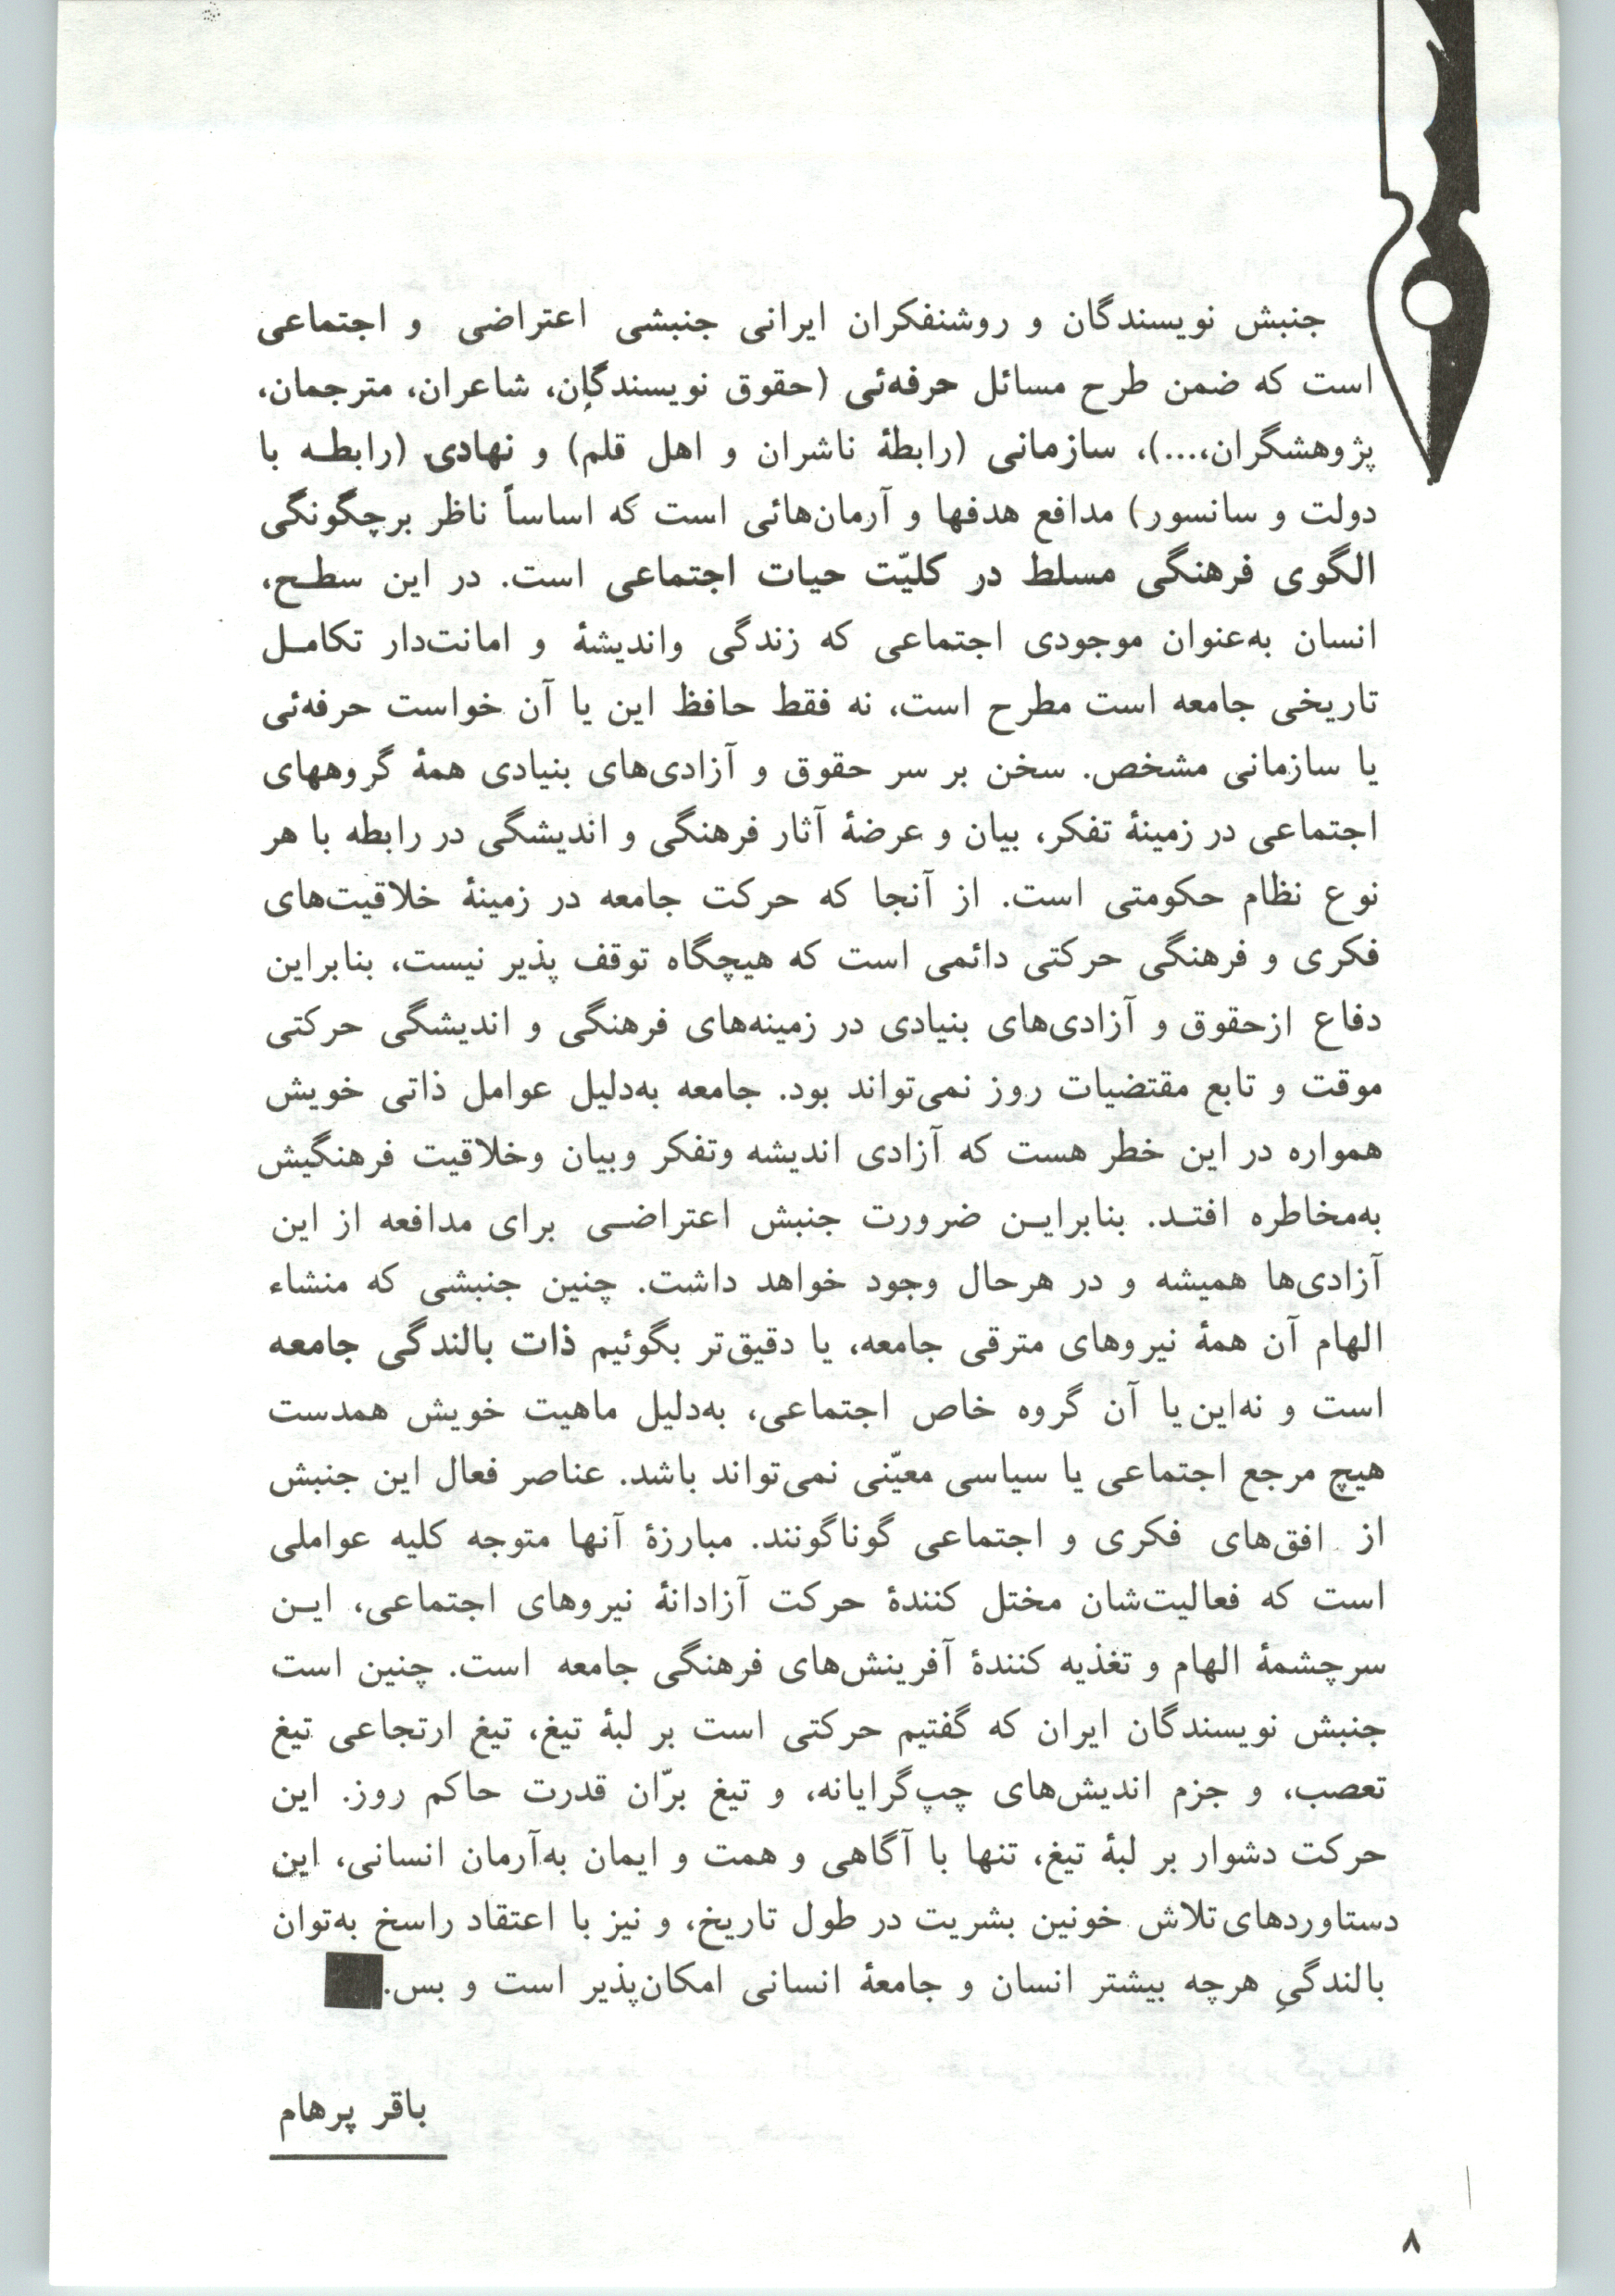 جنبش نویسندگان و روشنفکران ایرانی جنبشی اعتراضی و اجتماعی
است که ضمن طرح مسائل حرفه‌ئی (حقوق نویسندگان، شاعران، مترجمان،
پژوهشگران،...)، سازمانی (رابطهٔ ناشران و اهل قلم) و نهادی (رابطه با
دولت و سانسور) مدافع هدفها و آرمان‌هائی است که اساساً ناظر برچگونگی
الگوی فرهنگی مسلط در کلیّت حیات اجتماعی است. در این سطح،
انسان به‌عنوان موجودی اجتماعی که زندگی واندیشهٔ و امانت‌دار تکامل
تاریخی جامعه است مطرح است، نه فقط حافظ این یا آن خواست حرفه‌ئی
یا سازمانی مشخص. سخن بر سر حقوق و آزادی‌های بنیادی همهٔ گروههای
اجتماعی در زمینهٔ تفکر، بیان و عرضهٔ آثار فرهنگی و اندیشگی در رابطه با هر
نوع نظام حکومتی است. از آنجا که حرکت جامعه در زمینهٔ خلاقیت‌های
فکری و فرهنگی حرکتی دائمی است که هیچگاه توقف پذیر نیست، بنابراین
دفاع ازحقوق و آزادی‌های بنیادی در زمینه‌های فرهنگی و اندیشگی حرکتی
موقت و تابع مقتضیات روز نمی‌تواند بود. جامعه به‌دلیل عوامل ذاتی خویش
همواره در این خطر هست که آزادی اندیشه وتفکر وبیان وخلاقیت فرهنگیش
به‌مخاطره افتد. بنابراین ضرورت جنبش اعتراضی برای مدافعه از این
آزادی‌ها همیشه و در هرحال وجود خواهد داشت. چنین جنبشی که منشاء
الهام آن همهٔ نیروهای مترقی جامعه، یا دقیق‌تر بگوئیم ذات بالندگی جامعه
است و نه‌این یا آن گروه خاص اجتماعی، به‌دلیل ماهیت خویش همدست
هیچ مرجع اجتماعی یا سیاسی معیّنی نمی‌تواند باشد. عناصر فعال این جنبش
از افق‌های فکری و اجتماعی گوناگونند. مبارزهٔ آنها متوجه کلیه عواملی
است که فعالیت‌شان مختل کنندهٔ حرکت آزادانهٔ نیروهای اجتماعی، این
سرچشمهٔ الهام و تغذیه کنندهٔ آفرینش‌های فرهنگی جامعه است. چنین است
جنبش نویسندگان ایران که گفتیم حرکتی است بر لبهٔ تیغ، تیغ ارتجاعی تیغ
تعصب، و جزم اندیش‌های چپ‌گرایانه، و تیغ برّان قدرت حاکم روز. این
حرکت دشوار بر لبهٔ تیغ، تنها با آگاهی و همت و ایمان به‌آرمان انسانی، این
دستاوردهای تلاش خونین بشریت در طول تاریخ، و نیز با اعتقاد راسخ به‌توان
بالندگیِ هرچه بیشتر انسان و جامعهٔ انسانی امکان‌پذیر است و بس.
باقر پرهام
۸